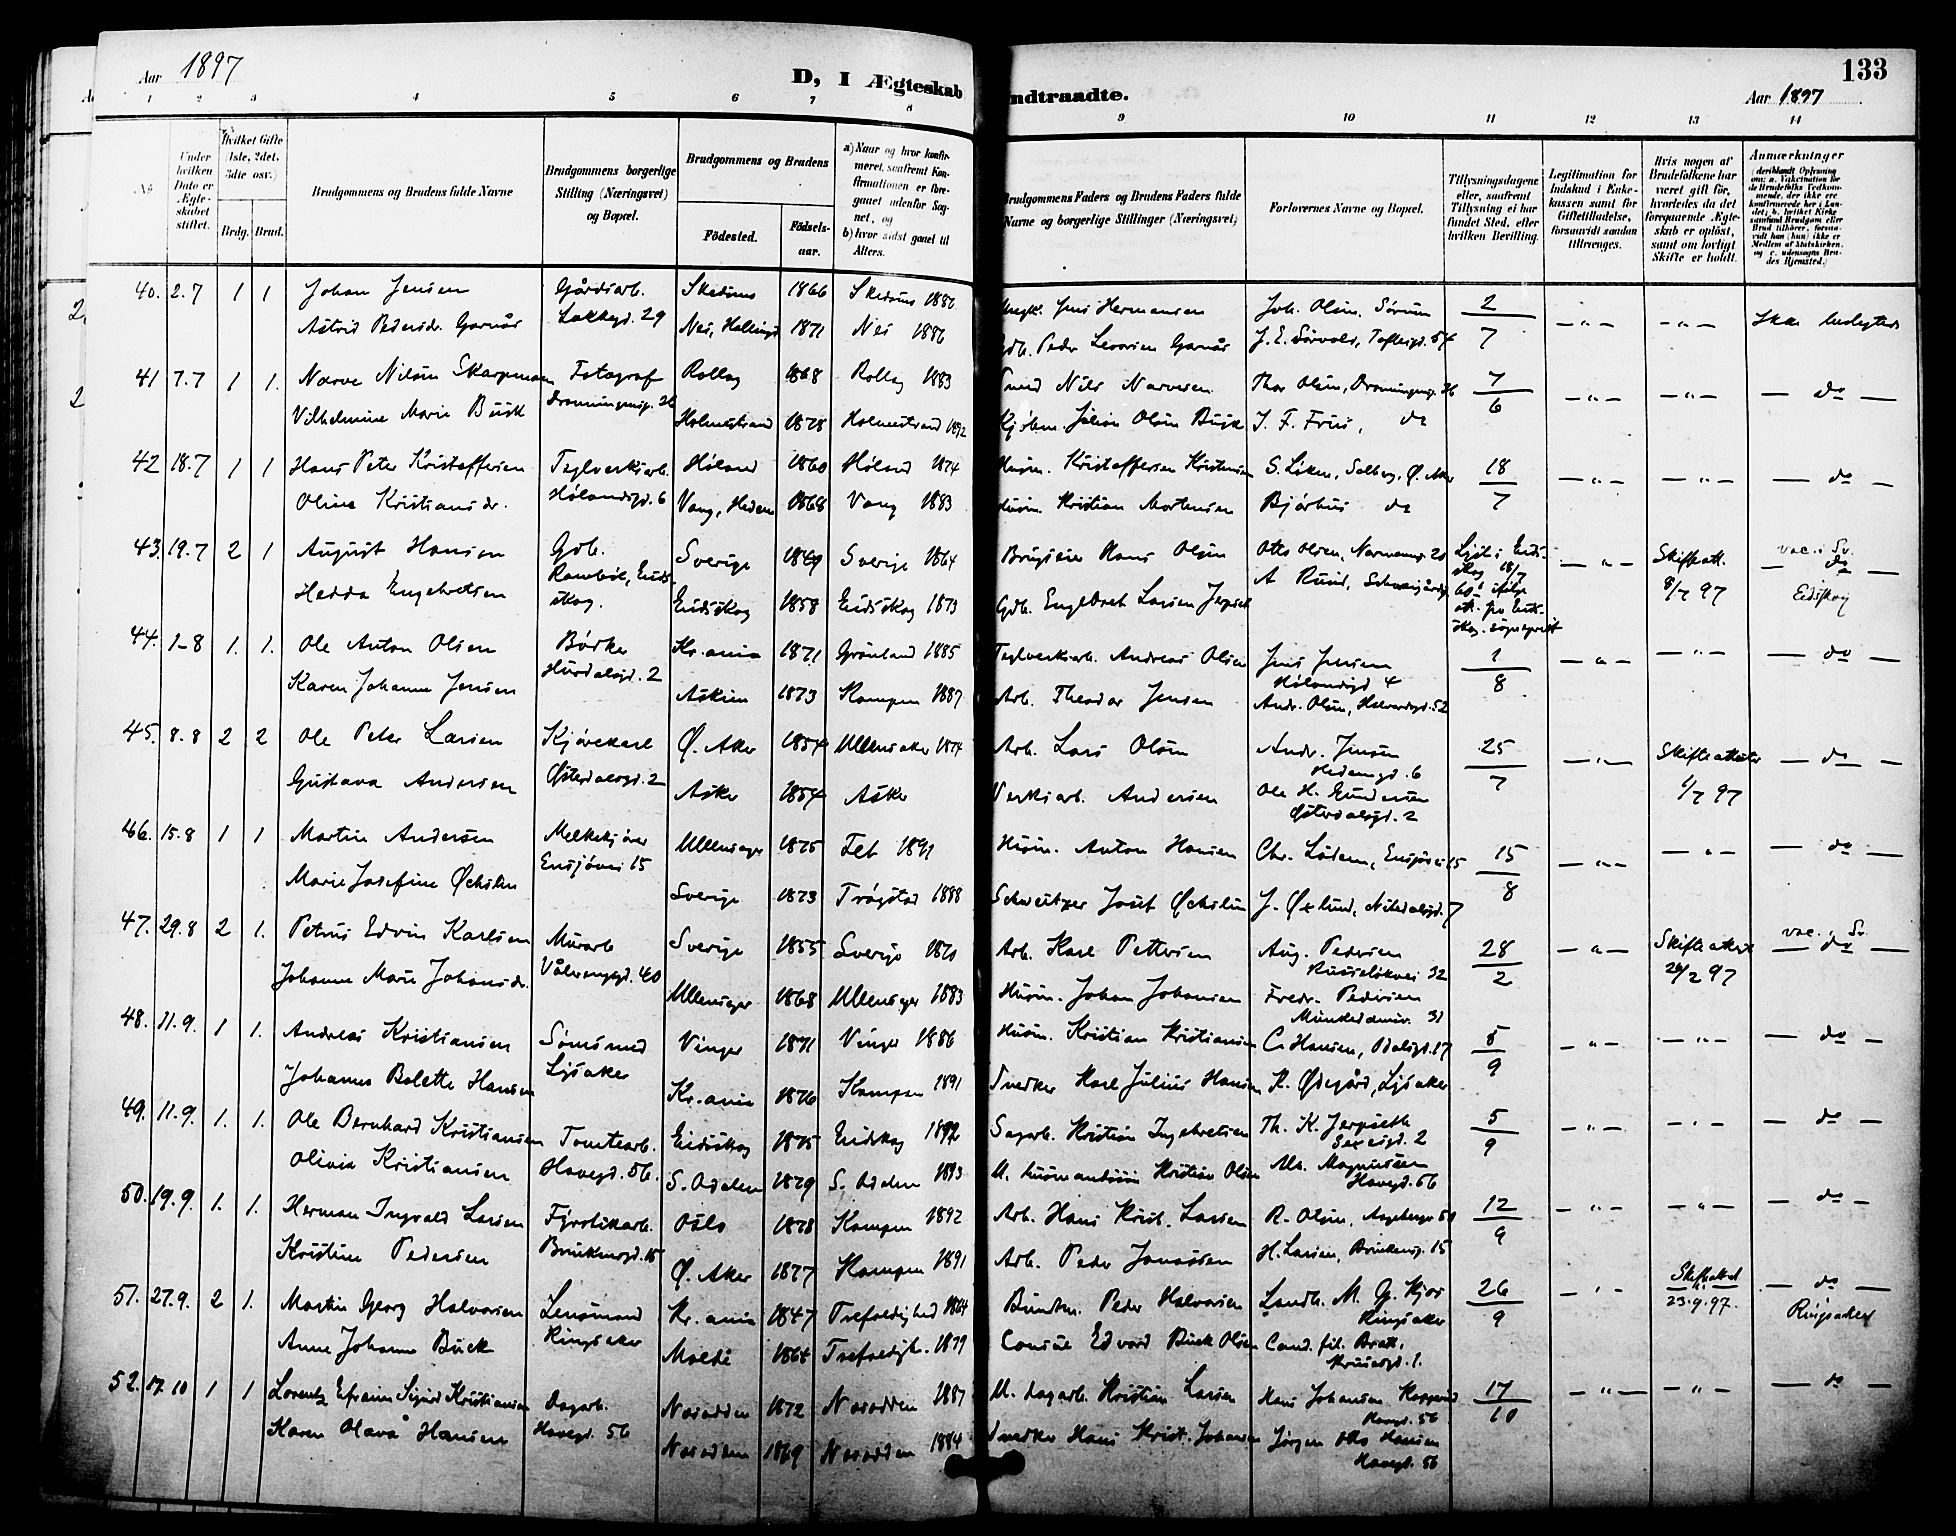 Aar 1897
D, I Ægteskab
indtraadte.
133
Aar 1897
1 2 3 4 5 6 7 8 9 10 11 12 13 14
No
Under hvilken Dato er Ægteskabet stiftet.
Hvilket Gifte (1ste, 2det. 3die osv.)
Brdg. Brud.
Brudgommens og Brudens fulde Navne
Brudgommens borgerlige Stilling (Næringsvei) og Bopæl.
Brudgommens og Brudens
Fødested.
Fødselsaar.
a) Naar og hvor konfirmeret, saafremt Konfirmationen er foregaaet udenfor Sognet, og
b) hvor sidst gaaet til Alters.
Brudgommens Faders og Brudens Faders fulde Navne og borgerlige Stillinger (Næringsvei)
Forlovernes Navne og Bopæl.
Tillysningsdagene eller, saafremt Tillysning ei har fundet Sted, efter hvilken Bevilling.
Legitimation for Indskud i Enkekassen samt for Giftetilladelse, forsaavidt saadan tiltrænges.
Hvis nogen af Brudefolkene har været gift før, hvorledes da det foregaaende Ægteskab er opløst, samt om lovligt Skifte er holdt.
Anmærkninger
(deriblandt Oplysning om: a. Vakcination for de Brudefolks Vedkommende, der ikke ere konfirmerede her i Landet; b. hvilket Kirkesamfund Brudgom eller Brud tilhører, forsaavidt han (hun) ikke er Medlem af Statskirken, og c. udensogns Brudes Hjemsted.)
40. 2.7 1 1 Johan Jensen Gårdsarb. Skedsmo 1866 Skedsmo 1880 Jens Hermansen Joh. Olsen, Sørum 2
Astrid Pedersdr. Garnås Lakkegd. 29 Nes, Hallingd 1871 Nes 1886 Gdb. Peder Garnås J. E. Sørvold, Toftesgd. 54 7 Ikke beslegtede
41 7.7 1 1. Narve Nilsen Skarpmoen Fotograf Rollag 1868 Rollag 1883 Smed Nils Narvesen Thor Olsen, Dronningensg. 26 7 do
Vilhelmine Marie Busk Dronningensg. 26 Holmestrand 1878 Holmestrand 1892 Olsen Busk J. F. Friis, do 6
42 18.7 1 1 Hans Peter Kristoffersen Teglverksarb. Høland 1860 Høland 1874 Husm. Kristoffersen S. Løken, Solberg, Ø. Aker 18 do
Oline Kristiansdr. Hølandsgd. 6 Vang, Hedem 1868 Vang 1883 Husm. Kristian Mortensen Bjørhus do 7
43. 19.7 2 1 August Hansen Gdb. Sverige 1849 Sverige 1864 Hans Olsen Otto Olsen, Normannsg. 20 Lyst i Eidskog 18/7 Skifteatt. vac. i Sv. do
Hedda Engebretsen Eidskog. Eidsskog 1858 Eidsskog 1873 Gdb. Engebret Larsen A Ruud, Schweigårdsg. 8/7 97 Eidskog
44. 1-8 1. 1. Ole Anton Olsen Bødker Kr.ania 1871 Grønland 1885 Teglverksarb. Andreas Olsen Jens Jensen Hølandsgd 4 1 do
Karen Johanne Jensen Hurdalsgd. 2 Askim 1873 Kampen 1887 Arb. Theodor Jensen Andr. Olsen, Halvardsgd. 52 8
45. 8.8 2 2 Ole Peter Larsen Kjørekarl Ø. Aker 1854 Ullensaker 1874 Arb. Lars Olsen Andr. Jensen Hedemgd. 6 25 Skifteattester do
Gustava Andersen Østerdalsgd. 2 Asker 1854 Asker Verksarb. Andersen Ole H. Gundersen Østerdalsgd. 2 7 1/7 97
46. 15.8 1 1 Martin Andersen Melkekjører Ullensager 1875 Fet 1891 Husm. Anton Hansen Chr. Lødem, Ensjøvei 15 15 do
Marie Josefine Øchslin Ensjøvei 15 Sverige 1873 Trøgstad 1888 Schweitzer Josef Øchslin J. Øxlund, Nitedalsgd. 7 8
47. 29.8 2 1. Petrus Edvin Karlsen Murarb Sverige 1855 Sverige 1870 Arb. Karl Pettersen Aug. Pedersen Russeløkvei 32 28 Skifteattest vac. i Sv. do
Johanne Marie Johansdr. Vålerenggd. 40 Ullensager 1868 Ullensager 1883 Husm. Johan Johansen Fredr. Pedersen Munkedamsv. 31 2 26/2 97
48. 11.9. 1 1. Andreas Kristiansen Sømsmed Vinger 1871 Vinger 1886 Husm. Kristian Kristiansen C. Hansen, Odalsgd. 17 5 do
Johanne Bolette Hansen Lysaker Kr.ania 1876 Kampen 1891 Snedker Karl Julius Hansen K. Ødegård, Lysaker 9
49. 11.9. 1. 1. Ole Bernhard Kristiansen Tomtearb. Eidsskog 1875 Eidskog 1892 Sagarb. Kristian Ingebretsen Th. K. Jerpseth 2 5 do
Olivia Kristiansen Havegd. 56. S. Odalen 1879 S. Odalen 1893 Kristian Olsen Magnussen Havegd. 56 9
50. 19.9. 1. 1. Herman Ingvald Larsen Fyrstikarb. Oslo 1878 Kampen 1892 Arb. Hans Krist. Larsen R. Olsen, Aagebergv. 50 12 do
Kristine Pedersen Brinkensgd. 15 Ø. Aker 1877 Kampen 1891 Arb. Peder Jonassen H. Larsen, Brinkensg. 15 9
51. 27.9. 2 1. Martin Georg Halvorsen Lensmand Kr.ania 1847 Trefoldighed 1864 Peder Halvorsen Landh. M. G. Kjos Ringsaker 26 Skifteattest 23.9.97. do
Anne Johanne Buck Ringsaker Molde 1864 Trefoldigh. 1879 Consul Edvard Buck Olsen Cand. fil. Bratt, Krusesgd. 1. 9 Ringsaker
52. 17.10 1 1 Lorentz Efraim Sigurd Kristiansen Dagarb. Nesodden 1872 Nesodden 1887 U. dagarb. Kristian Larsen Hans Johansen Havegd. 56 17 do
Karen Olava Hansen Havegd. 56 Nesodden 1869 Nesodden 1884 Snedker Hans Krist. Johansen Jørgen Otto Hansen Havegd. 56 10